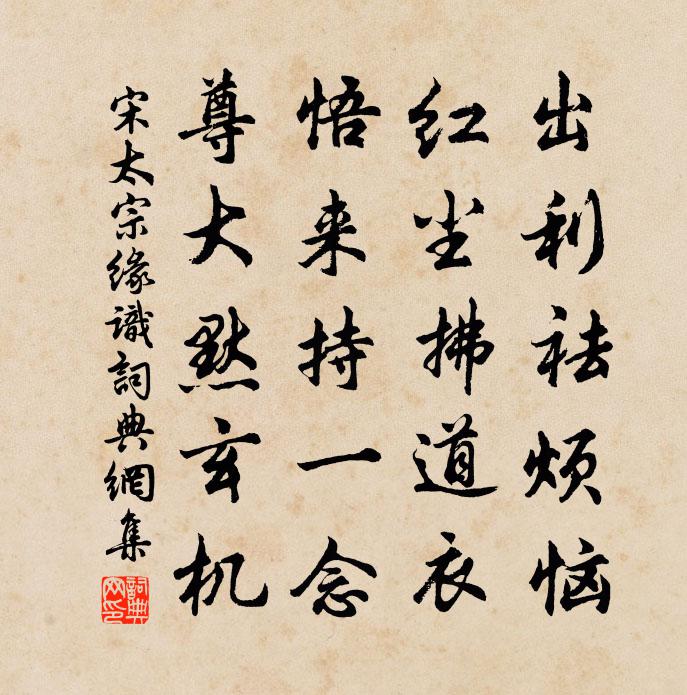 出利祛烦恼
红尘拂道衣
悟来持一念
尊大黙玄机
宋太宗缘識詞典網集
詞典网印